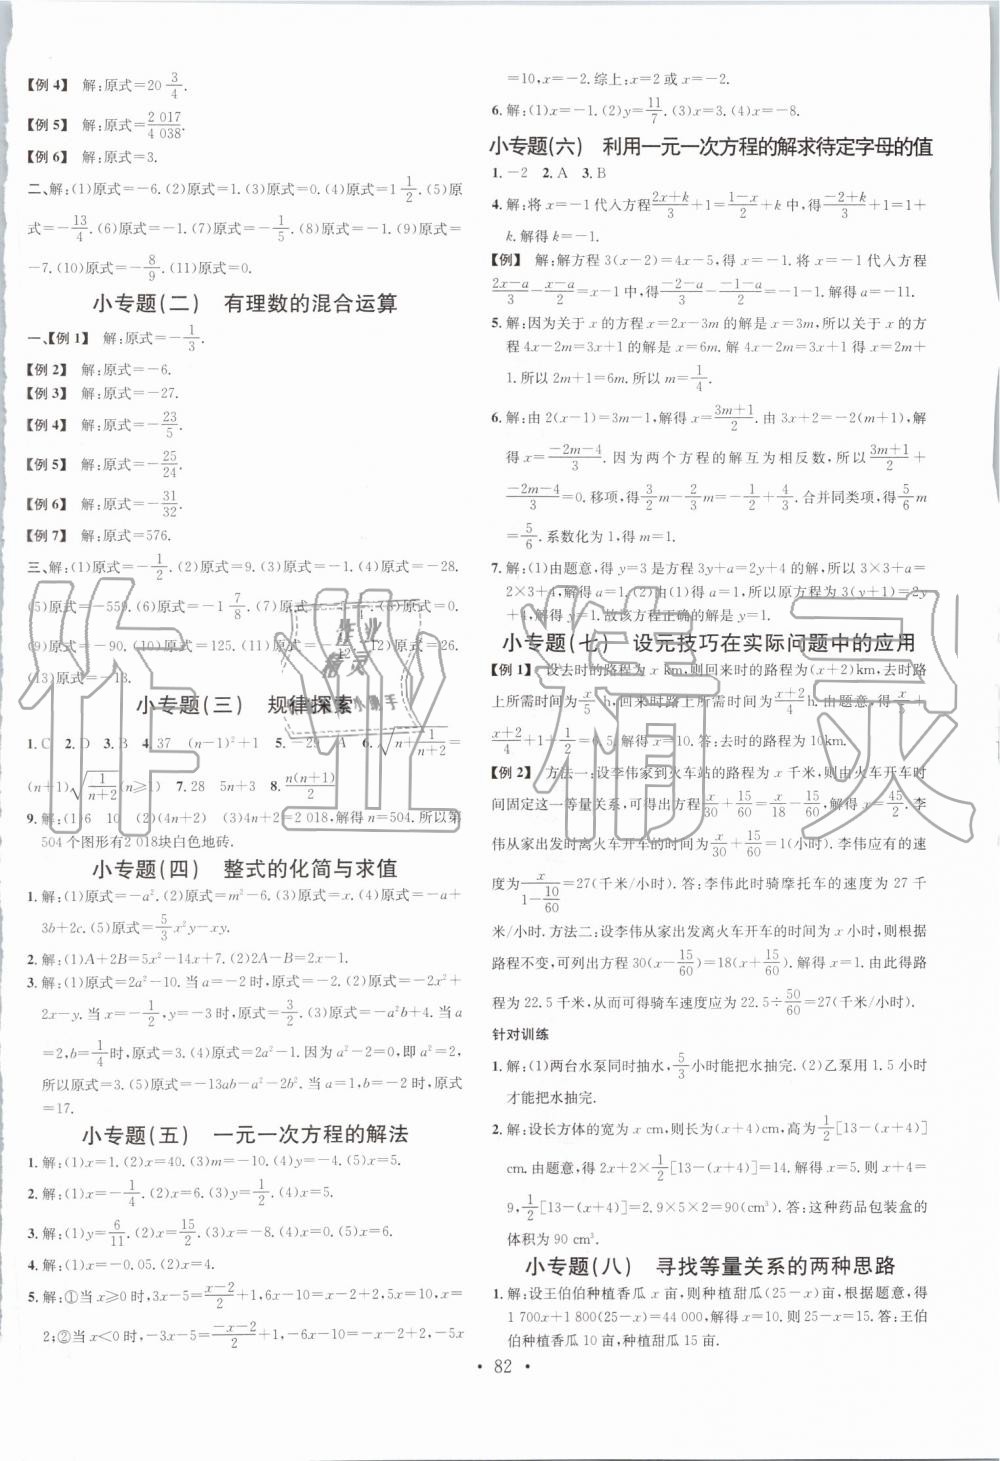 【例 4】 解:原式=20 3/4.
【例 5】 解:原式=2 017/4 038.
【例 6】 解:原式=3.
二、解:(1)原式=-6.(2)原式=1.(3)原式=0.(4)原式=1 1/2.(5)原
式=-13/4.(6)原式=-1.(7)原式=-1/5.(8)原式=-1.(9)原式=
-7.(10)原式=-8/9.(11)原式=0.
小专题(二) 有理数的混合运算
一、【例 1】 解:原式=-1/3.
【例 2】 解:原式=-6.
【例 3】 解:原式=-27.
【例 4】 解:原式=-23/5.
【例 5】 解:原式=-25/24.
【例 6】 解:原式=-31/32.
【例 7】 解:原式=576.
三、解:(1)原式=-1/2.(2)原式=9.(3)原式=-1.(4)原式=-28.
(5)原式=-559.(6)原式=-1 7/8.
(13)原式=-13.
小专题(三) 规律探索
1. C 2. D 3. B 4. 37 (n-1)²+1 5. -29 A 6. √(n+1/(n+2))=
(n+1)√(1/(n+2))(n≥1) 7. 28 5n+3 8. n(n+1)/2
9. 解:(1)6 10 (2)(4n+2) (3)4n+2=2 018,解得 n=504. 所以第
504 个图形有2 018块白色地砖.
小专题(四) 整式的化简与求值
1. 解:(1)原式=-a².(2)原式=m²-6.(3)原式=x.(4)原式=-a+
3b+2c.(5)原式=5/3x²y-xy.
2. 解:(1)A+2B=5x²-14x+7.(2)2A-B=2x-1.
3. 解:(1)原式=2a²-10. 当 a=-2时,原式=-2.(2)原式=4x²+
2x-y. 当 x=-1/2,y=-3时,原式=3.(3)原式=-a²b+4. 当 a=
2,b=1/4时,原式=3.(4)原式=2a²-1. 因为 a²-2=0,即 a²=2,
所以原式=3.(5)原式=-13ab-a²-2b². 当 a=1,b=-2时,原式
=17.
小专题(五) 一元一次方程的解法
1. 解:(1)x=1.(2)x=40.(3)m=-10.(4)y=-4.(5)x=5.
2. 解:(1)x=-1/4.(2)x=6.(3)y=1/2.(4)x=5.
3. 解:(1)y=6/11.(2)x=15/2.(3)x=-8.(4)x=0.(5)x=5.
4. 解:(1)x=-0.05.(2)x=4.
5. 解:①当 x≥0时,3x=(x-2)/2+1,6x-10=x-2+2,5x=10,x=
2;②当 x<0 时,-3x-5=(-x-2)/2+1,-6x-10=-x-2+2,-5x
=10,x=-2. 综上:x=2或 x=-2.
6. 解:(1)x=-1.(2)y=11/7.(3)x=3.(4)x=-8.
小专题(六) 利用一元一次方程的解求待定字母的值
1. -2 2. A 3. B
4. 解:将 x=-1 代入方程(2x+k)/3+1=(1-x)/2+k 中,得(-2+k)/3+1=1+
k. 解得 k=-1.
【例】 解:解方程 3(x-2)=4x-5,得 x=-1. 将 x=-1 代入方程
(2x-a)/3-(x-a)/2=x-1,得(-2-a)/3-(-1-a)/2=-1-1. 解得 a=-11.
5. 解:因为关于 x 的方程 x=2x-3m的解是 x=3m,所以关于 x 的方
程 4x-2m=3x+1的解是 x=6m. 解 4x-2m=3x+1 得 x=2m+
1. 所以 2m+1=6m. 所以 m=1/4.
6. 解:由 2(x-1)=3m-1,解得 x=(3m+1)/2. 由 3x+2=-2(m+1),解
得 x=(-2m-4)/3. 因为两个方程的解互为相反数,所以(3m+1)/2+
(-2m-4)/3=0. 移项,得3/2m-2/3m=-1/2+4/3. 合并同类项,得5/6m
=5/6. 系数化为1,得 m=1.
7. 解:(1)由题意,得 y=3是方程 3y+a=2y+4的解,所以 3×3+a=
2×3+4,解得 a=1.(2)由(1)得 a=1,所以原方程为 3(y+1)=2y
+4,解得 y=1. 故该方程正确的解是 y=1.
小专题(七) 设元技巧在实际问题中的应用
【例 1】 设去时的路程为 x km,则回来时的路程为(x+2)km,去时路
上所需时间为x/5 h,回来时路上所需时间为(x+2)/4 h. 由题意,得x/5+
(x+2)/4+1=6.5,解得 x=10. 答:去时的路程为 10km.
【例 2】 方法一:设李伟家到火车站的路程为 x 千米,则由火车开车时
间固定这一等量关系,可列出方程x/30+15/60=x/18-15/60,解得 x=45/2. 李
伟从家出发时离火车开车时间为x/30+15/60=1(小时). 李伟骑车的速
度为x/(1-10/60)=27(千米/小时). 答:李伟此时骑摩托车的速度为 27 千
米/小时. 方法二:设李伟从家出发离火车开车的时间为 x 小时,根据
路程不变,可列出方程 30(x-15/60)=18(x+15/60),解得 x=1. 所以路
程为 22.5 千米,从而可得骑车速度应为 22.5÷50/60=27(千米/小时).
针对训练
1. 解:(1)两台水泵同时抽水,5/3小时能把水抽完.(2)乙泵用 1.5小时
才能把水抽完.
2. 解:设长方体的宽为 x cm,则长为(x+4)cm,高为1/2[13-(x+4)]
cm. 由题意,得 2x+2×1/2[13-(x+4)]=14. 解得 x=5. 所以 x+4=
9,1/2[13-(x+4)]=2.9×5×2=90(cm³). 答:这种药品包装盒的
体积为 90 cm³.
小专题(八) 寻找等量关系的两种思路
1. 解:设王伯伯种植香瓜 x 亩,则种植甜瓜(25-x)亩,根据题意,得
1 700x+1 800(25-x)=44 000. 解得 x=10. 则 25-x=15. 答:王伯
伯种植香瓜 10 亩,种植甜瓜 15 亩.
· 82 ·
作业精灵